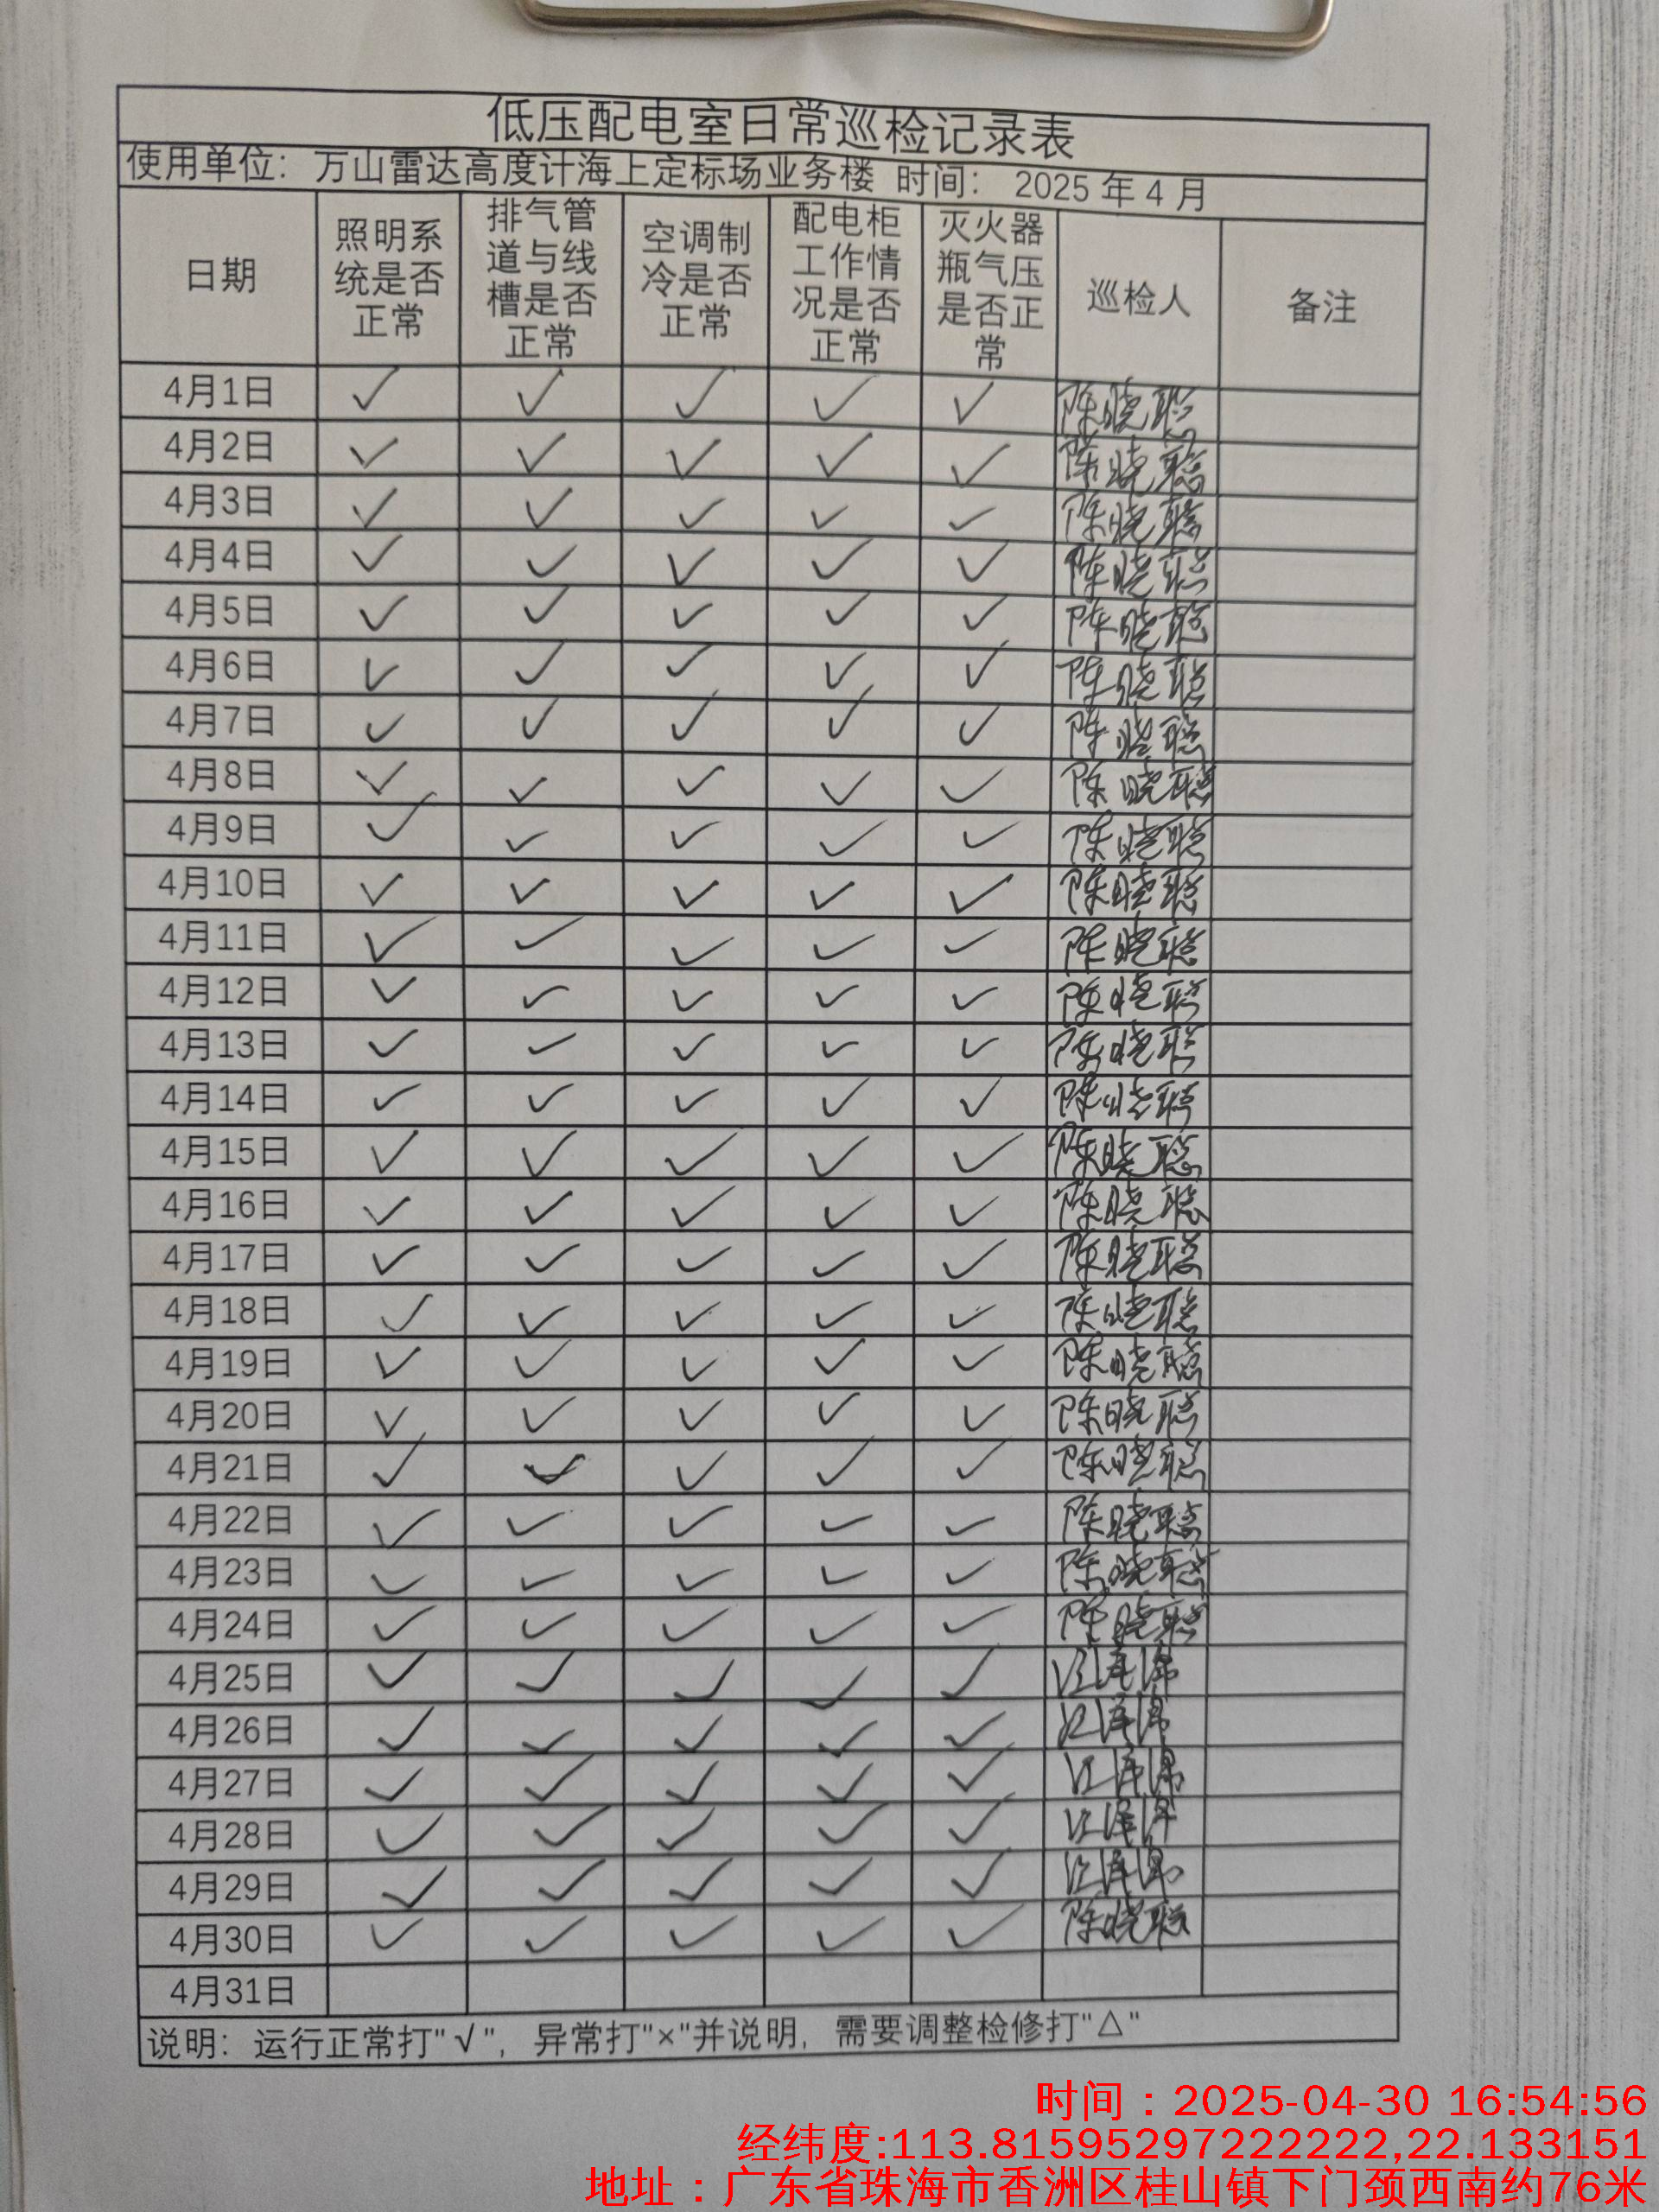 低压配电室日常巡检记录表
使用单位：万山雷达高度计海上定标场业务楼 时间： 2025 年 4 月
日期 照明系统是否正常 排气管道与线槽是否正常 空调制冷是否正常 配电柜工作情况是否正常 灭火器瓶气压是否正常 巡检人 备注
4月1日 ✓ ✓ ✓ ✓ ✓ 陈晓聪
4月2日 ✓ ✓ ✓ ✓ ✓ 陈晓聪
4月3日 ✓ ✓ ✓ ✓ ✓ 陈晓聪
4月4日 ✓ ✓ ✓ ✓ ✓ 陈晓聪
4月5日 ✓ ✓ ✓ ✓ ✓ 陈晓聪
4月6日 ✓ ✓ ✓ ✓ ✓ 陈晓聪
4月7日 ✓ ✓ ✓ ✓ ✓ 陈晓聪
4月8日 ✓ ✓ ✓ ✓ ✓ 陈晓聪
4月9日 ✓ ✓ ✓ ✓ ✓ 陈晓聪
4月10日 ✓ ✓ ✓ ✓ ✓ 陈晓聪
4月11日 ✓ ✓ ✓ ✓ ✓ 陈晓聪
4月12日 ✓ ✓ ✓ ✓ ✓ 陈晓聪
4月13日 ✓ ✓ ✓ ✓ ✓ 陈晓聪
4月14日 ✓ ✓ ✓ ✓ ✓ 陈晓聪
4月15日 ✓ ✓ ✓ ✓ ✓ 陈晓聪
4月16日 ✓ ✓ ✓ ✓ ✓ 陈晓聪
4月17日 ✓ ✓ ✓ ✓ ✓ 陈晓聪
4月18日 ✓ ✓ ✓ ✓ ✓ 陈晓聪
4月19日 ✓ ✓ ✓ ✓ ✓ 陈晓聪
4月20日 ✓ ✓ ✓ ✓ ✓ 陈晓聪
4月21日 ✓ ✓ ✓ ✓ ✓ 陈晓聪
4月22日 ✓ ✓ ✓ ✓ ✓ 陈晓聪
4月23日 ✓ ✓ ✓ ✓ ✓ 陈晓聪
4月24日 ✓ ✓ ✓ ✓ ✓ 陈晓聪
4月25日 ✓ ✓ ✓ ✓ ✓
4月26日 ✓ ✓ ✓ ✓ ✓
4月27日 ✓ ✓ ✓ ✓ ✓
4月28日 ✓ ✓ ✓ ✓ ✓
4月29日 ✓ ✓ ✓ ✓ ✓
4月30日 ✓ ✓ ✓ ✓ ✓ 陈晓聪
4月31日
说明：运行正常打"√"，异常打"×"并说明，需要调整检修打"△"
时间：2025-04-30 16:54:56
经纬度:113.81595297222222,22.133151
地址：广东省珠海市香洲区桂山镇下门颈西南约76米